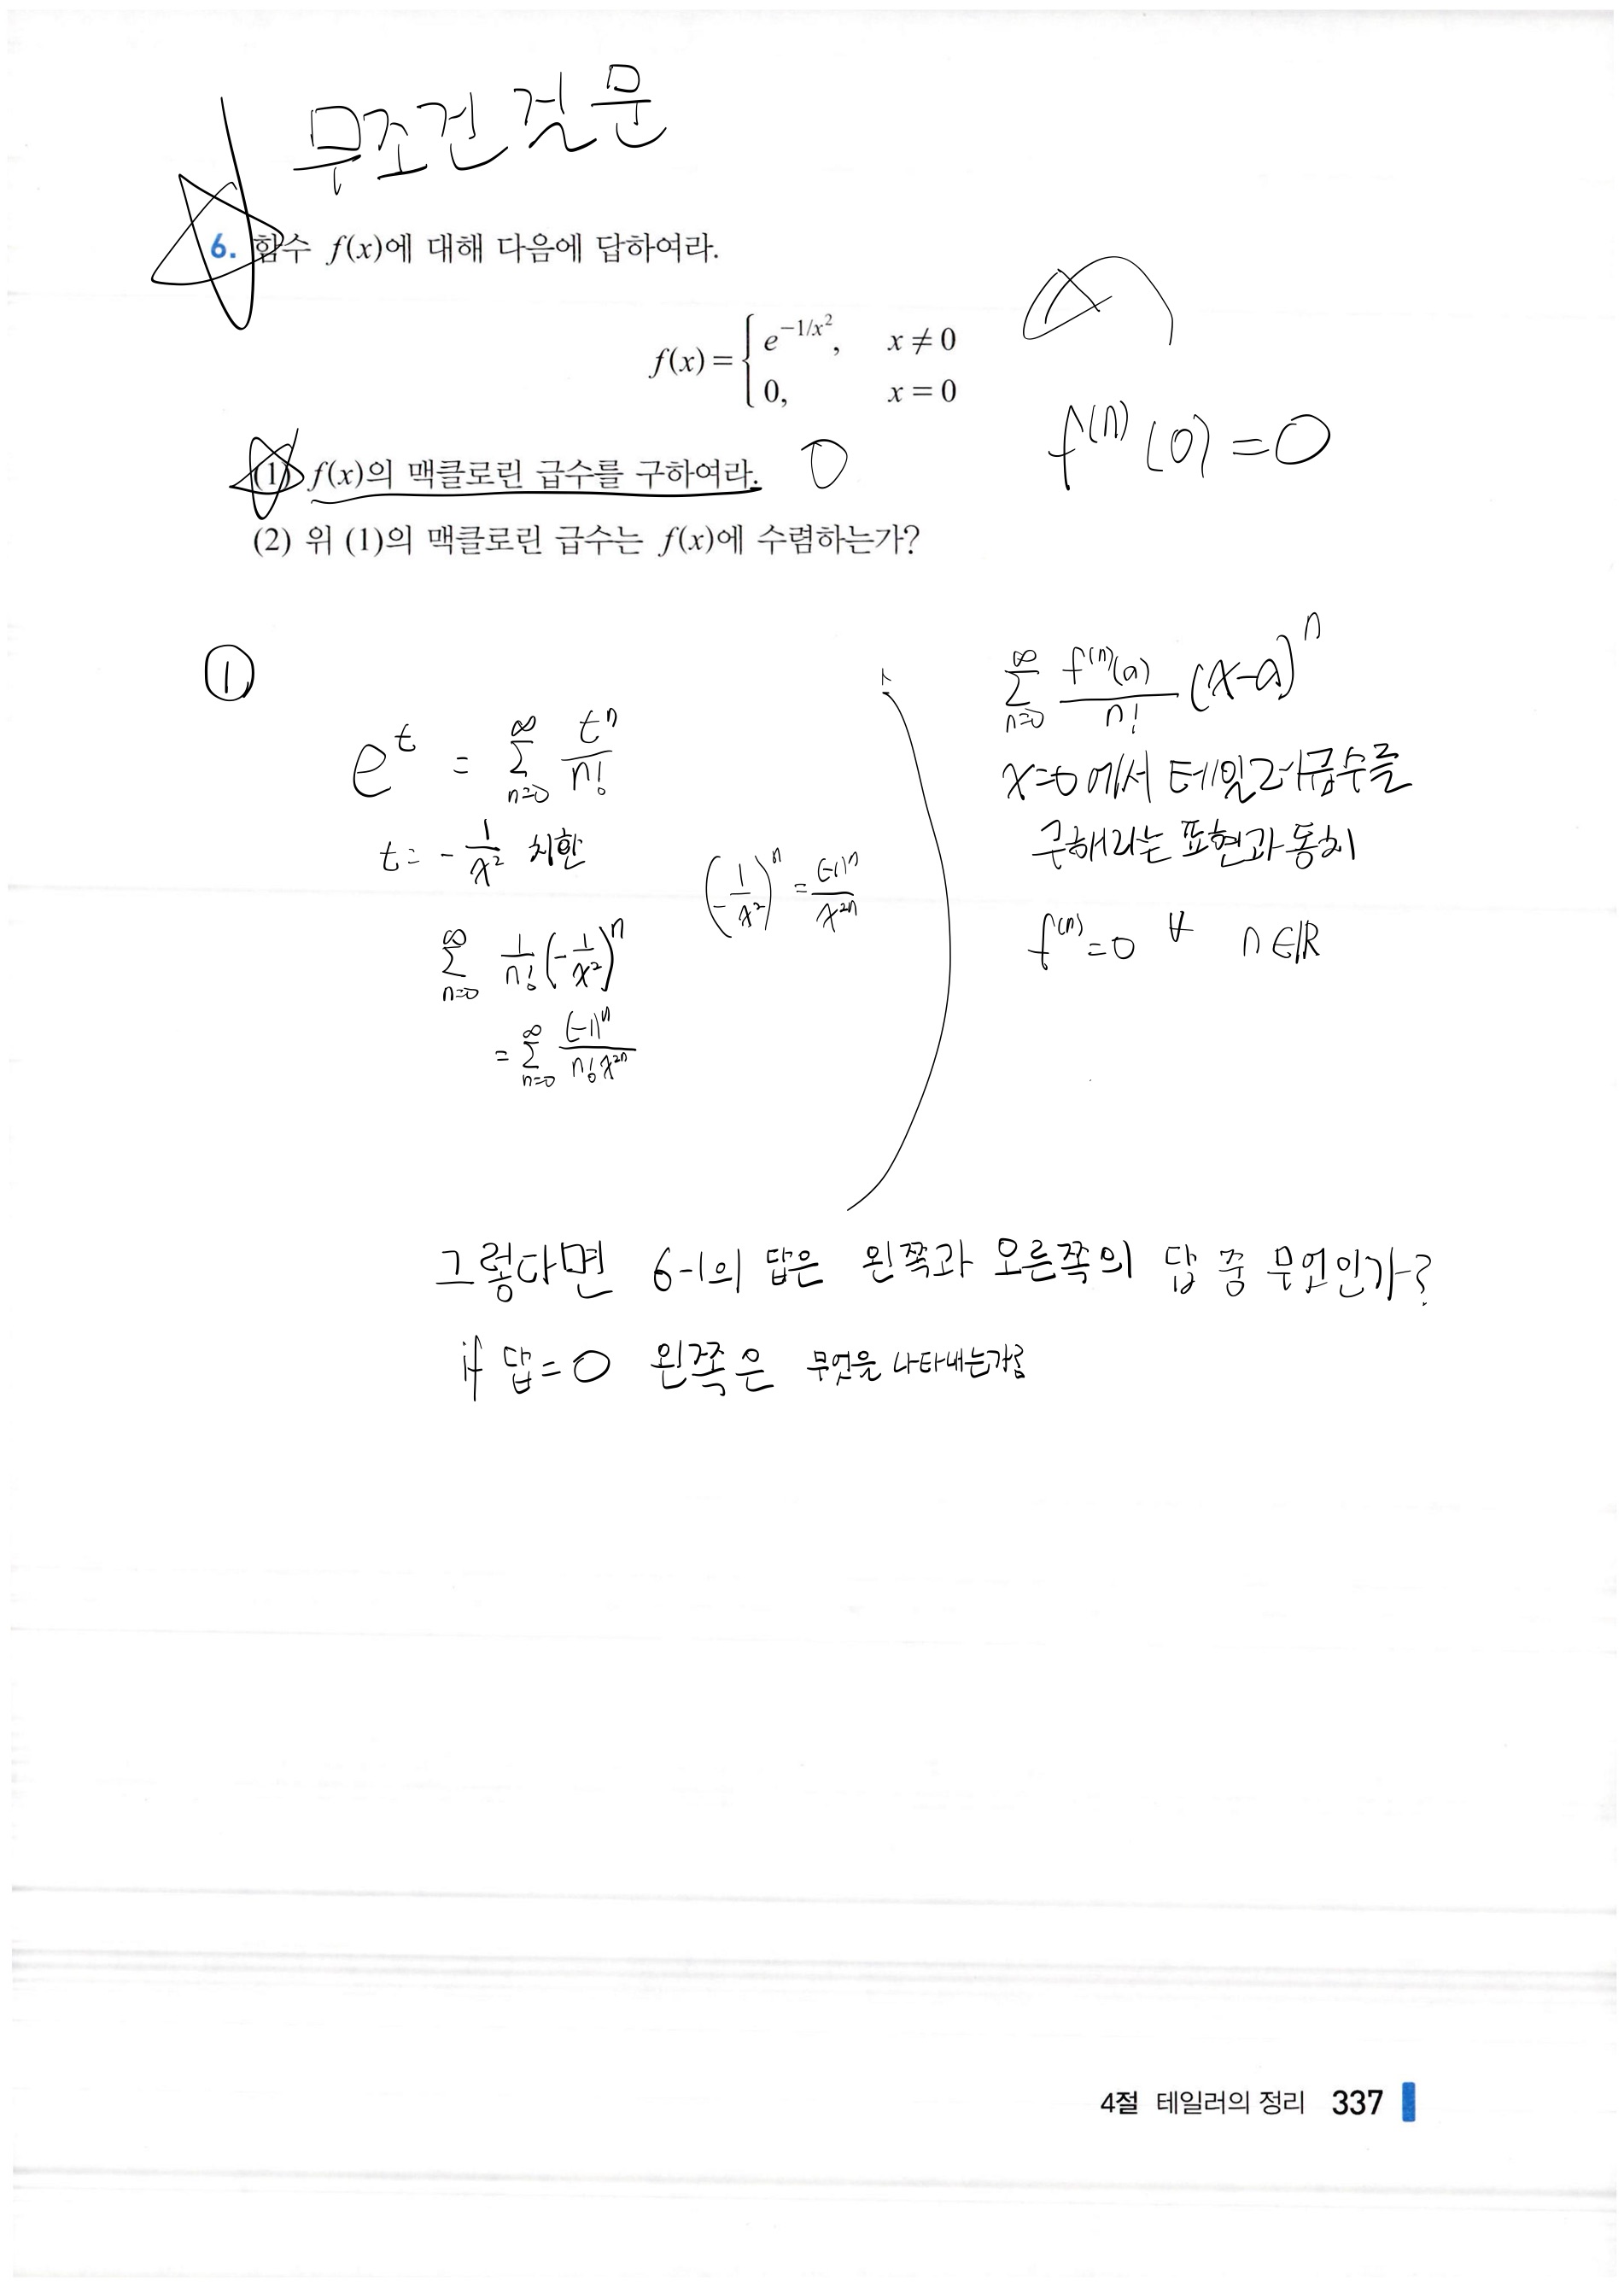 무조건 질문
6. 함수 f(x)에 대해 다음에 답하여라.
f(x) = { e^{-1/x²}, x ≠ 0
0, x = 0
f^{(n)}(0) = 0
(1) f(x)의 맥클로린 급수를 구하여라. 0
(2) 위 (1)의 맥클로린 급수는 f(x)에 수렴하는가?
①
e^t = ∑_{n=0}^{∞} t^n/n!
t = -1/x² 치환
(-1/x²)^n = (-1)^n/x^{2n}
∑_{n=0}^{∞} 1/n! (-1/x²)^n
= ∑_{n=0}^{∞} (-1)^n/n! x^{2n}
∑_{n=0}^{∞} f^{(n)}(a)/n! (x-a)^n
x=0에서 테일러급수를
구해라는 표현과 동치
f^{(n)} = 0 ∀ n∈ℝ
그렇다면 6-1의 답은 왼쪽과 오른쪽의 답 중 무엇인가?
if 답=0 왼쪽은 무엇을 나타내는가?
4절 테일러의 정리 337